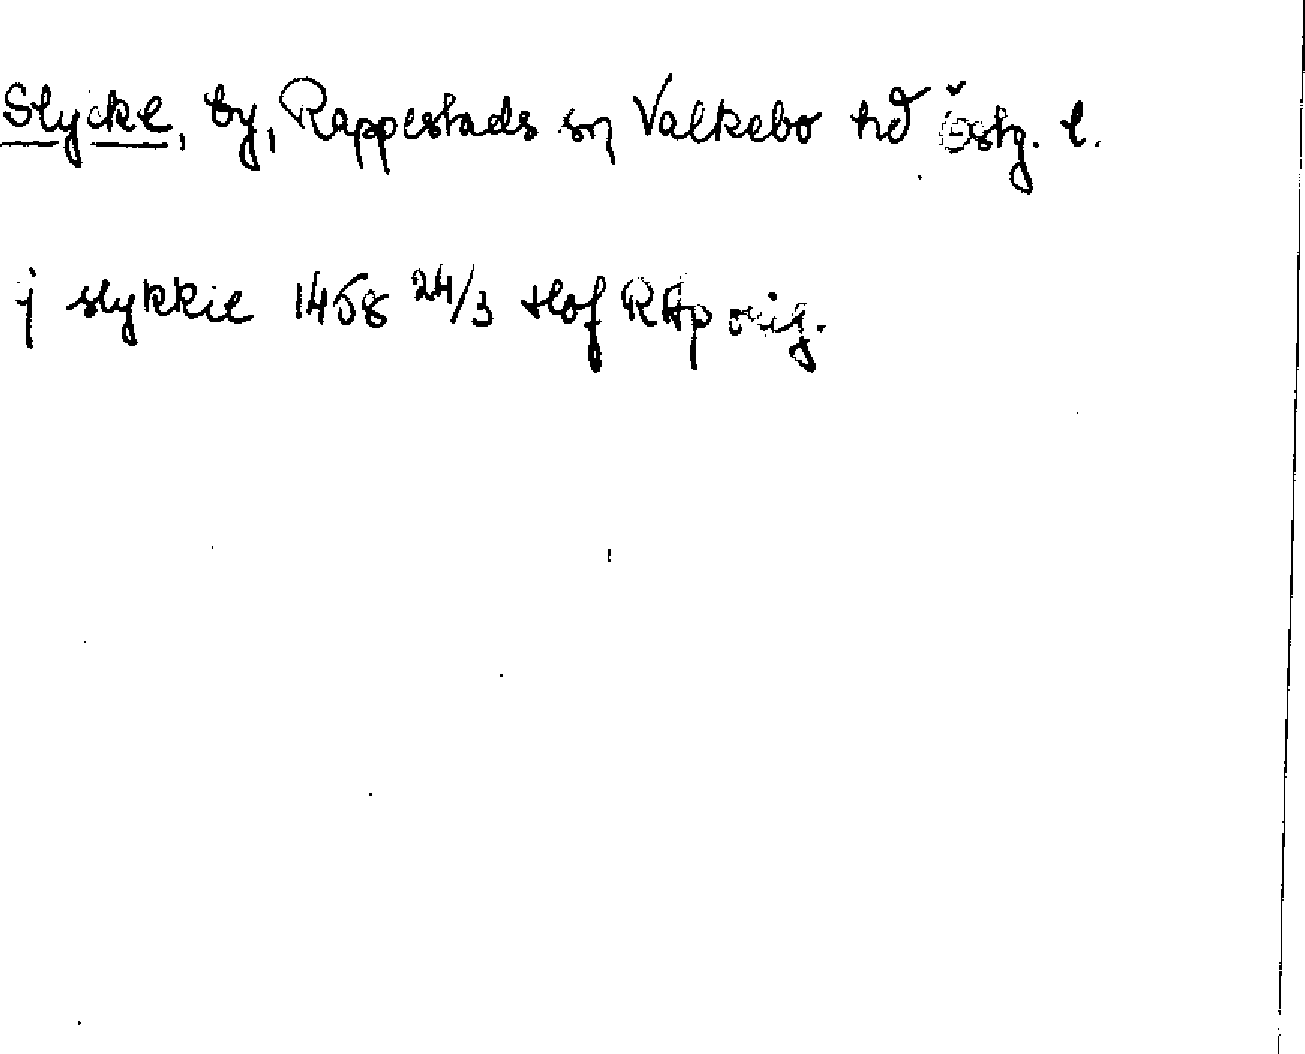 Stycke, by, Rappestads sn Valkebo hd Östg. l.
j stykkie 1458 24/3 Hof RAp orig.